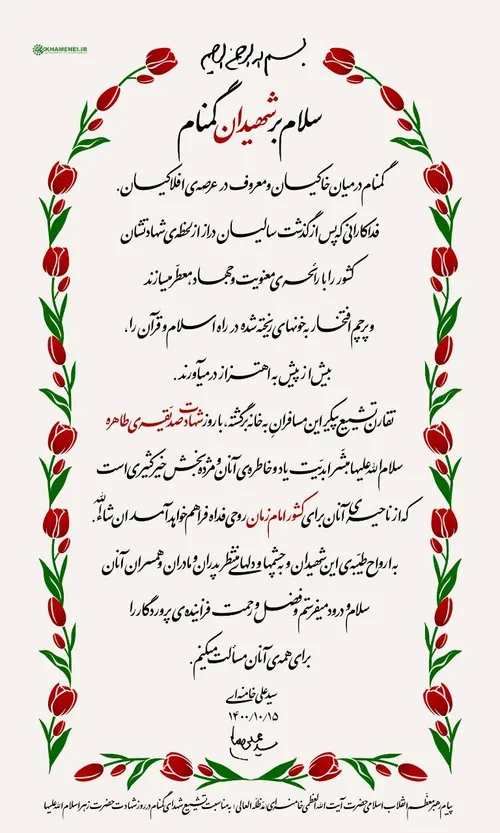 KHAMENEI.IR
بسم الله الرحمن الرحیم
سلام بر شهیدان گمنام
گمنام در میان خاکیان و معروف در عرصه‌ی افلاکیان.
فداکارانی که پس از گذشت سالیان دراز از لحظه‌ی شهادتشان
کشور را با رائحه‌ی معنویت و جهاد، معطّر میسازند
و پرچم افتخار به خونهای ریخته شده در راه اسلام و قرآن را،
بیش از پیش به اهتزاز درمیآورند.
تقارن تشییع پیکر این مسافرانِ به خانه برگشته، با روز شهادت صدیقه‌ی طاهره
سلام الله علیها مبشّر ابدیّت یاد و خاطره‌ی آنان و مژده‌بخش خیر کثیری است
که از ناحیه‌ی آنان برای کشور امام زمان روحی فداه فراهم خواهد آمد ان شاءالله.
به ارواح طیّبه‌ی این شهیدان و به چشمها و دلهای منتظر پدران و مادران و همسران آنان
سلام و درود میفرستم و فضل و رحمت فزاینده‌ی پروردگار را
برای همه‌ی آنان مسألت میکنم.
سیدعلی خامنه‌ای
۱۴۰۰/۱۰/۱۵
پیام رهبر معظّم انقلاب اسلامی حضرت آیت الله العظمی خامنه‌ای (مدّظلّه العالی) به مناسبت تشییع شهدای گمنام در روز شهادت حضرت زهرا سلام الله علیها